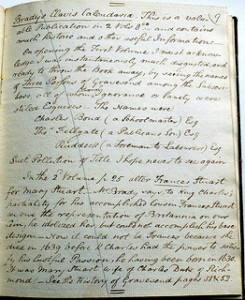 Brady's Clavis Calendaria. This is a valu-
able Publication in 2 Vols 8vo and contains
much historic and other useful Information.
On opening the First Volume, I must acknow-
ledge I was instantaneously much disgusted, and
ready to throw the Book away, by seeing the names
of Three Persons of Gravesend among the Subscri-
bers out of whom ignorance or vanity were
styled Esquires. The Names were,
Charles Bond (a Schoolmaster) Esq
Thos Fellgate (a Publicans Son) Esq
Ruddock (a Foreman to Labourers) Esq
Such Pollution of Title I hope never to see again
In the 2 Volume p. 25 alter Frances Stuart
for Mary Stuart. Mr Brady says, King Charles's
partiality for his accomplished Cousin Frances Stuart
in one the representation of Britannia on our
coin, he idolized her, but could not accomplish his base
design. Now it could not be Frances, because she
died in 1639 before K Charles had the power to
his lustful Passion, he having been born in 1630.
It was Mary Stuart wife of Charles Duke of Rich-
mond. See the History of Gravesend pages 52 & 53.